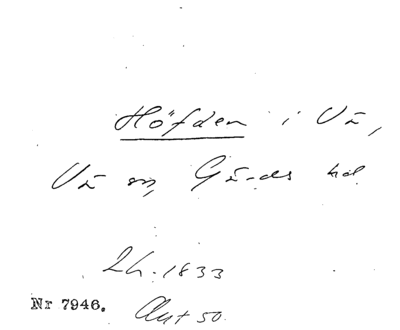 Höfden i Vä,
Vä sn, Gärds hd
Lh. 1833
Nr 7946. Akt 50